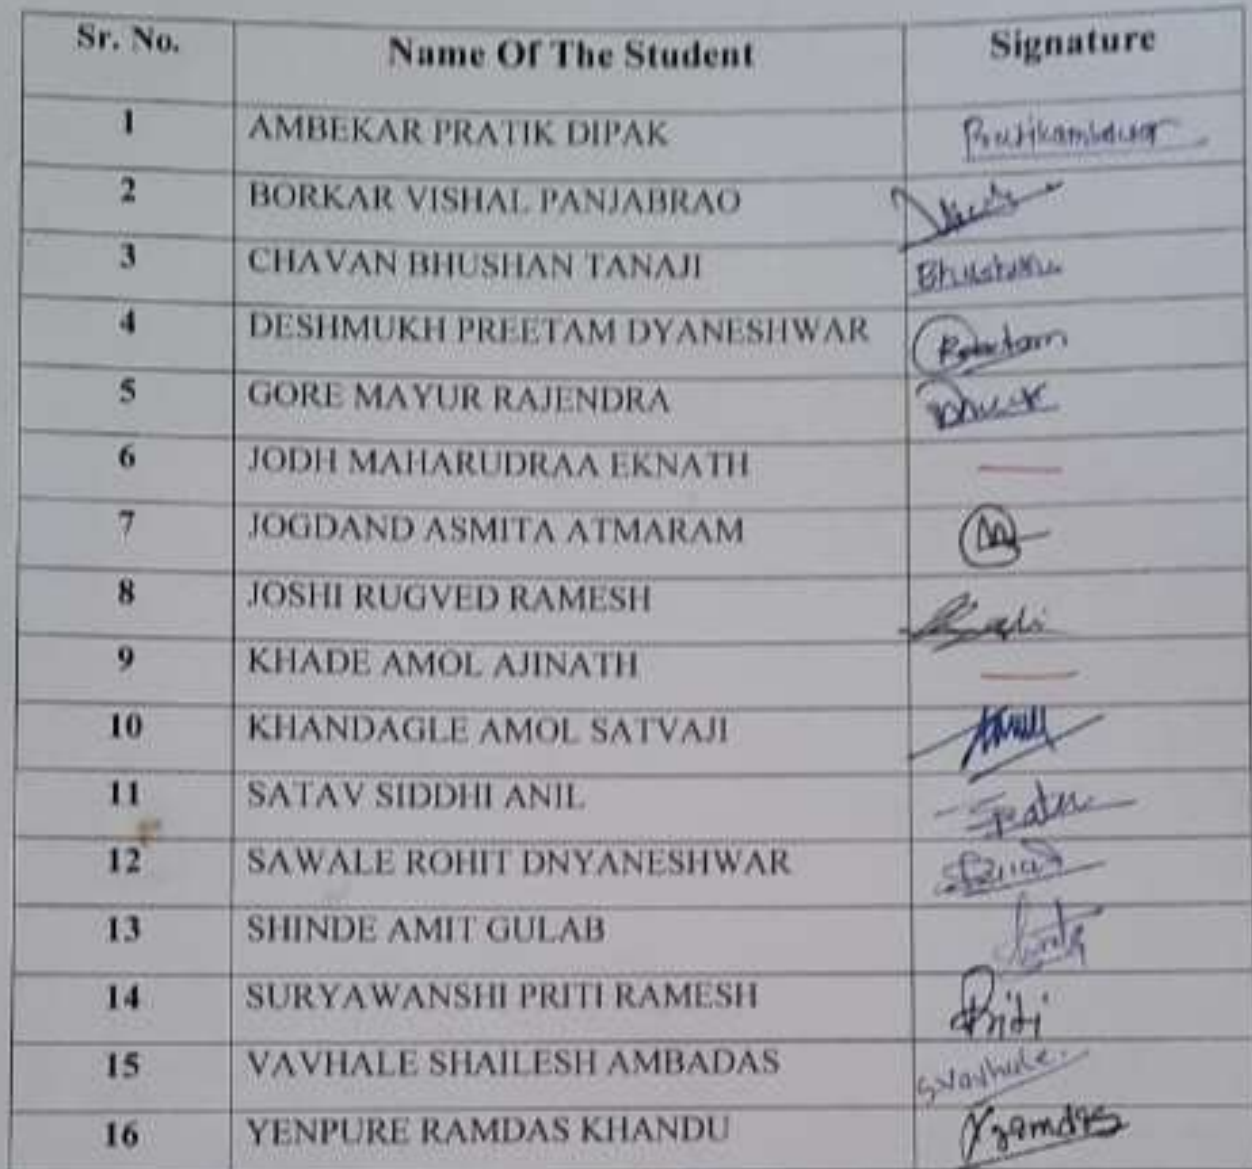 Sr. No. Name Of The Student Signature
1 AMBEKAR PRATIK DIPAK
2 BORKAR VISHAL PANJABRAO
3 CHAVAN BHUSHAN TANAJI
4 DESHMUKH PREETAM DYANESHWAR
5 GORE MAYUR RAJENDRA
6 JODH MAHARUDRAA EKNATH —
7 JOGDAND ASMITA ATMARAM
8 JOSHI RUGVED RAMESH
9 KHADE AMOL AJINATH —
10 KHANDAGLE AMOL SATVAJI
11 SATAV SIDDHI ANIL
12 SAWALE ROHIT DNYANESHWAR
13 SHINDE AMIT GULAB
14 SURYAWANSHI PRITI RAMESH Priti
15 VAVHALE SHAILESH AMBADAS svavhale.
16 YENPURE RAMDAS KHANDU